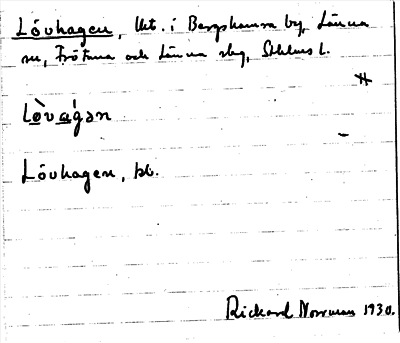 Lövhagen, lht. i Bergshamra by, Länna
sn, Frötuna och Länna slg, Sthlms l.
Lò̱va̱´gən
Lövhagen, kt.
Rickard Norrman 1930.